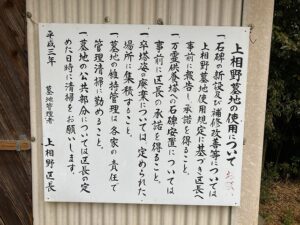 上相野墓地の使用について
一石碑の新設及び補修改善等については
上相野墓地使用規定に基づき区長へ
事前に報告し承諾を得ること。
一万霊供養塔への石碑安置については
事前に区長の承諾を得ること。
一卒塔婆の廃棄については定められた
場所に集積すること。
一墓地の維持管理は各家の責任で
管理清掃に勤めること。
一墓地の公共部分については区長の定
めた日時に清掃をお願いします。
平成三年
墓地管理者
上相野区長